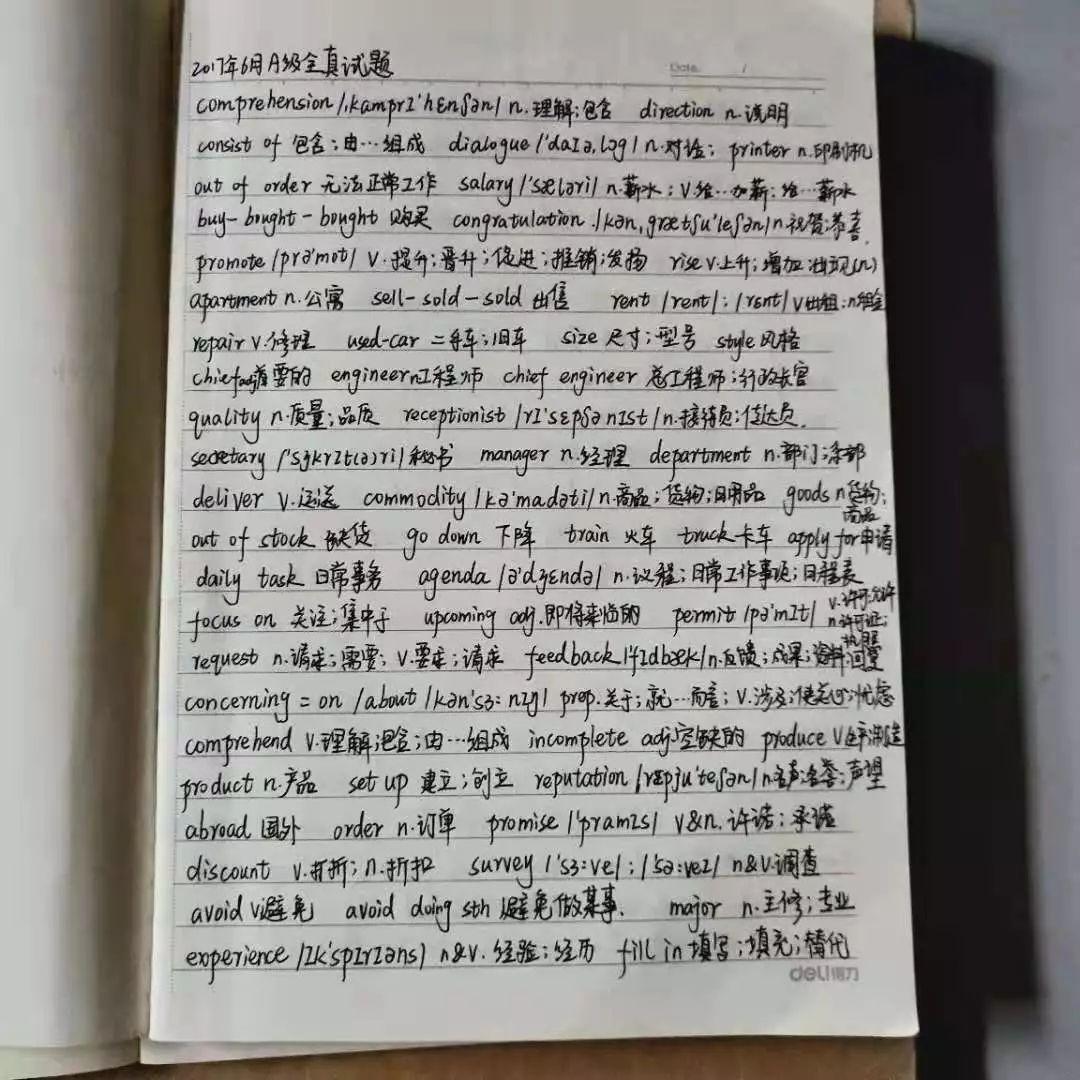 2017年6月A级全真试题
Date /
comprehension /,kamprI'hɛnʃən/ n.理解;包含 direction n.说明
consist of 包含;由…组成 dialogue /'daIə,lɔg/ n.对话; printer n.印刷机
out of order 无法正常工作 salary /'sæləri/ n.薪水;v给…加薪;给…薪水
buy-bought-bought 购买 congratulation /kən,grætʃu'leʃən/ n.祝贺;恭喜.
promote /prə'mot/ v.提升;晋升;促进;推销;发扬 rise v.上升;增加;出现(n)
apartment n.公寓 sell-sold-sold 出售 rent /rent/;/rɛnt/ v出租;n租金
repair v.修理 used-car 二手车;旧车 size 尺寸;型号 style 风格
chief adj首要的 engineer n工程师 chief engineer 总工程师;行政长官
quality n.质量;品质 receptionist /rI'sɛpʃənIst/ n.接待员;传达员.
secretary /'sɝkrIt(ə)ri/ 秘书 manager n.经理 department n.部门;系部
deliver v.运送 commodity /kə'madəti/ n.商品;货物;日用品 goods n货物;
商品
out of stock 缺货 go down 下降 train 火车 truck 卡车 apply for申请
daily task 日常事务 agenda /ə'dʒɛndə/ n.议程;日常工作事项;日程表
focus on 关注;集中于 upcoming adj.即将来临的 permit /pə'mIt/ v.许可;允许
n.许可证;
执照
request n.请求;需要;v.要求;请求 feedback /'fIdbæk/ n.反馈;成果;资料;回复
concerning = on /about /kən'sɜ:nIŋ/ prep.关于;就…而言;v.涉及;使关心;忧虑
comprehend v.理解;包含;由…组成 incomplete adj空缺的 produce v生产;制造
product n.产品 set up 建立;创立 reputation /rɛpju'teʃən/ n名声;名誉;声望
abroad 国外 order n.订单 promise /'pramIs/ v&n.许诺;承诺
discount v.打折;n.折扣 survey /'sɜ:ve/;/'sə:veI/ n&v.调查
avoid v避免 avoid doing sth 避免做某事. major n.主修;专业
experience /Ik'spIrIəns/ n&v.经验;经历 fill in 填写;填充;替代
deli得力